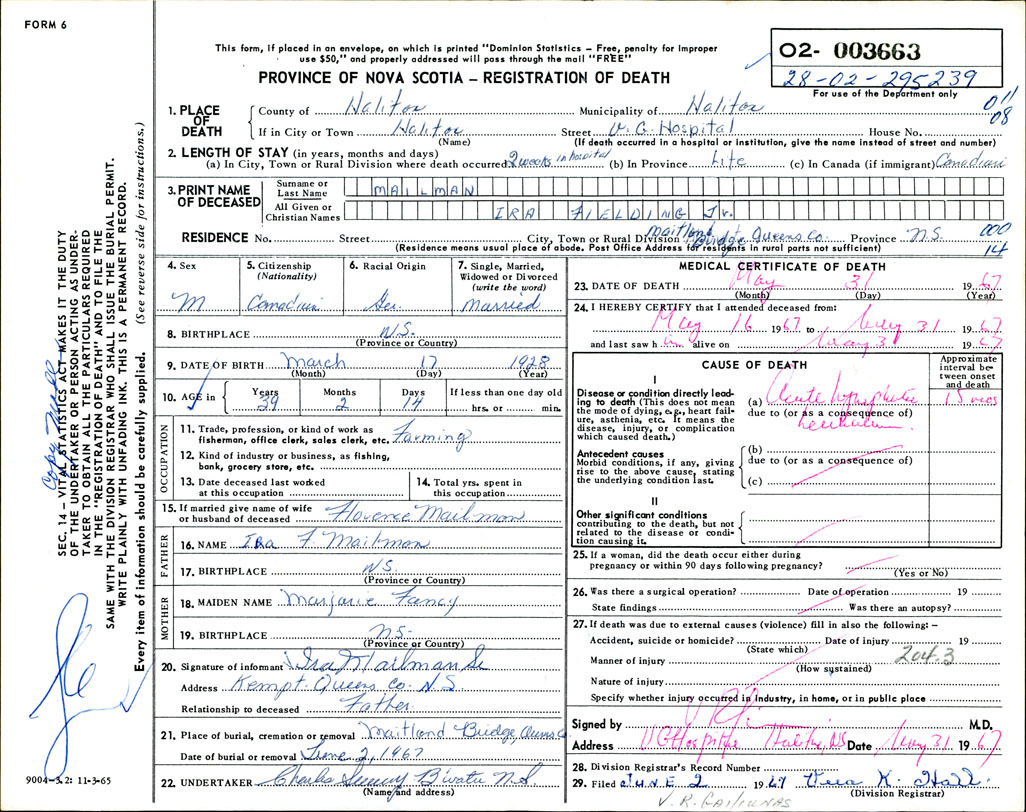 FORM 6
This form, if placed in an envelope, on which is printed "Dominion Statistics – Free, penalty for improper
use $50," and properly addressed will pass through the mail "FREE"
02- 003663
28-02-295239
For use of the Department only
PROVINCE OF NOVA SCOTIA – REGISTRATION OF DEATH
011
08
1. PLACE OF DEATH
County of Halifax Municipality of Halifax
If in City or Town Halifax Street V. G. Hospital House No.
(Name) (If death occurred in a hospital or institution, give the name instead of street and number)
2. LENGTH OF STAY (in years, months and days)
(a) In City, Town or Rural Division where death occurred 2 weeks in hospital (b) In Province Life (c) In Canada (if immigrant) Canadian
3. PRINT NAME OF DECEASED
Surname or Last Name MAILMAN
All Given or Christian Names IRA FIELDING Jr.
RESIDENCE No. Street City, Town or Rural Division Maitland Bridge, Queens Co. Province N.S.
(Residence means usual place of abode. Post Office Address for residents in rural parts not sufficient)
000
14
4. Sex
M
5. Citizenship (Nationality)
Canadian
6. Racial Origin
Ger.
7. Single, Married, Widowed or Divorced (write the word)
Married
8. BIRTHPLACE N.S.
(Province or Country)
9. DATE OF BIRTH March 17 1928
(Month) (Day) (Year)
10. AGE in
Years 39
Months 2
Days 14
If less than one day old
hrs. or min.
OCCUPATION
11. Trade, profession, or kind of work as
fisherman, office clerk, sales clerk, etc. Farming
12. Kind of industry or business, as fishing,
bank, grocery store, etc.
13. Date deceased last worked
at this occupation
14. Total yrs. spent in
this occupation
15. If married give name of wife
or husband of deceased Florence Mailman
FATHER
16. NAME Ira F. Mailman
17. BIRTHPLACE N.S.
(Province or Country)
MOTHER
18. MAIDEN NAME Marjorie Fancy
19. BIRTHPLACE N.S.
(Province or Country)
20. Signature of informant Ira Mailman Sr
Address Kempt Queens Co. N.S.
Relationship to deceased Father
21. Place of burial, cremation or removal Maitland Bridge, Queens Co
Date of burial or removal June 2, 1967
22. UNDERTAKER Charles N.S.
(Name and address)
MEDICAL CERTIFICATE OF DEATH
23. DATE OF DEATH May 31 1967
(Month) (Day) (Year)
24. I HEREBY CERTIFY that I attended deceased from:
May 16 1967 to May 31 1967
and last saw him alive on May 31 1967
CAUSE OF DEATH
Approximate interval between onset and death
I
Disease or condition directly lead-
ing to death (This does not mean
the mode of dying, e.g., heart fail-
ure, asthenia, etc. It means the
disease, injury, or complication
which caused death.)
(a) Acute
due to (or as a consequence of)
Antecedent causes
Morbid conditions, if any, giving
rise to the above cause, stating
the underlying condition last.
(b)
due to (or as a consequence of)
(c)
II
Other significant conditions
contributing to the death, but not
related to the disease or condi-
tion causing it.
25. If a woman, did the death occur either during
pregnancy or within 90 days following pregnancy?
(Yes or No)
26. Was there a surgical operation? Date of operation 19
State findings Was there an autopsy?
27. If death was due to external causes (violence) fill in also the following: –
Accident, suicide or homicide? Date of injury 19
(State which)
204.3
Manner of injury
(How sustained)
Nature of injury
Specify whether injury occurred in industry, in home, or in public place
Signed by M.D.
Address VG Hospital Halifax, NS Date May 31 1967
28. Division Registrar's Record Number
29. Filed JUNE 2 1967 Vera K. Hall
(Division Registrar)
9004-3.2: 11-3-65
SEC. 14 – VITAL STATISTICS ACT MAKES IT THE DUTY
OF THE UNDERTAKER OR PERSON ACTING AS UNDER-
TAKER TO OBTAIN ALL THE PARTICULARS REQUIRED
IN THE "REGISTRATION OF DEATH" AND TO FILE THE
SAME WITH THE DIVISION REGISTRAR WHO SHALL ISSUE THE BURIAL PERMIT.
WRITE PLAINLY WITH UNFADING INK. THIS IS A PERMANENT RECORD.
Every item of information should be carefully supplied. (See reverse side for instructions.)